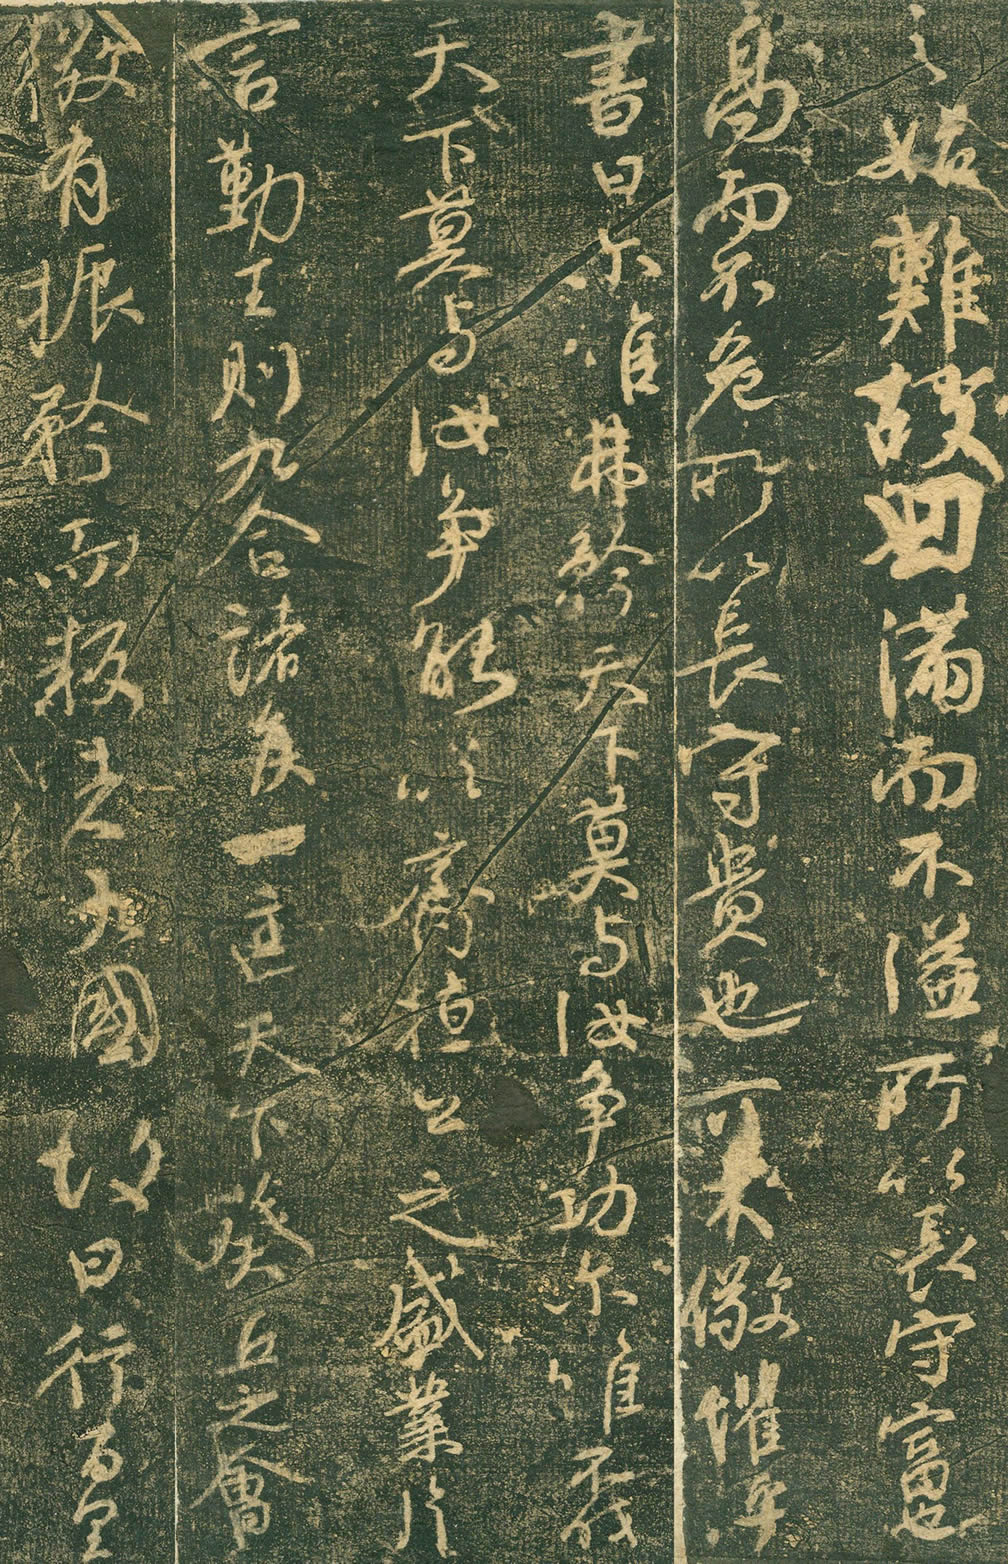 之始難故曰滿而不溢所以長守富也
高而不危所以長守貴也可不儆懼乎
書曰尔唯弗矜天下莫与汝争功尔唯不伐
天下莫与汝争能以齊桓公之盛業片
言勤王則九合諸侯一匡天下葵丘之會
微有振矜而叛者九國故曰行百里